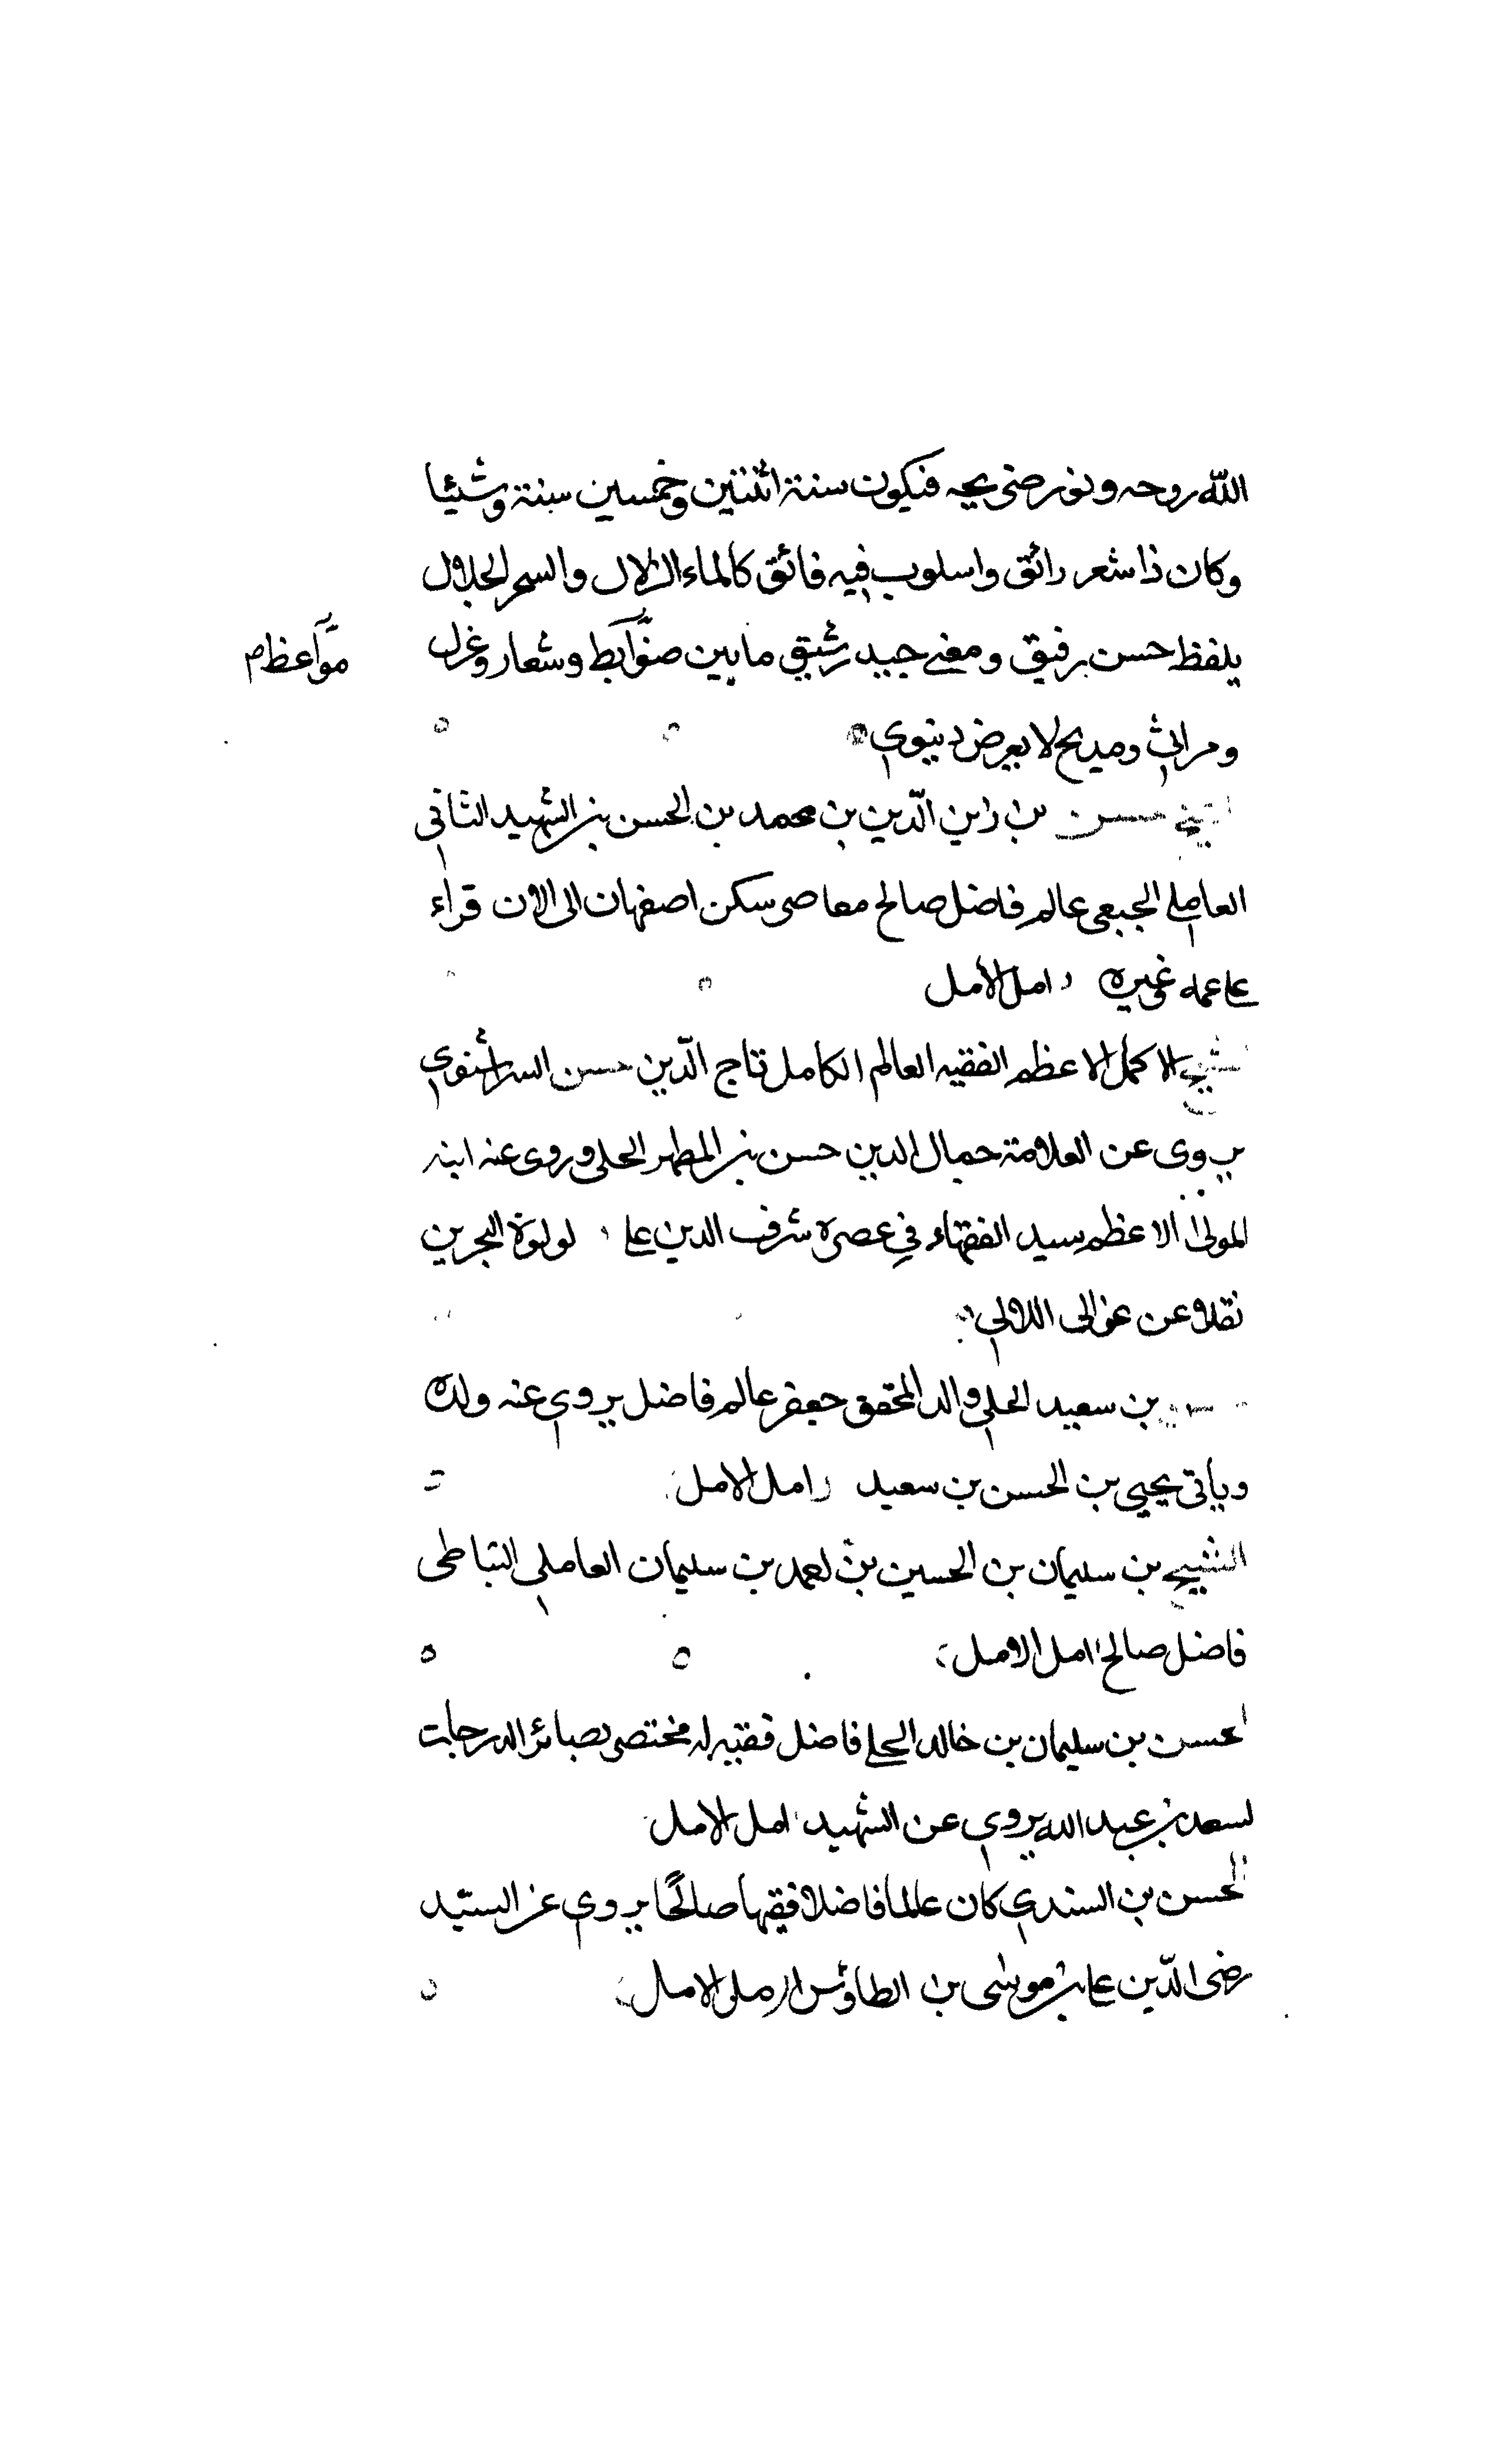 الله روحه ونور ضريحه فيكون سنة اثنتين وخمسين سنة وشيئا
وكان ذا شعر رائق واسلوب فيه فائق كالماء الزلال والسحر الحلال
بلفظ حسن رقيق ومعنى جيد رشيق ما بين ضوابط وشعار وغزل
مواعظ م
ومراثي ومديح لا بعرض دنيوي
حسن بن زين الدّين بن محمد بن الحسن بن الشهيد الثاني
العاملي الجبعي عالم فاضل صالح معاصر سكن اصفهان الى الان قراء
على عمه وغيره امل الأمل
الشيخ الاكمل الاعظم الفقيه العالم الكامل تاج الدّين حسن السرابشنوي
يروى عن العلامة جمال الدين حسن بن المطهر الحلي وروى عنه ابنه
المولى الاعظم سيد الفقهاء في عصره شرف الدين على لولوة البحرين
نقلا عن غوالى اللالي
بن سعيد الحلي والد المحقق جعفر عالم فاضل يروي عنه ولده
وياتى يحيى بن الحسن بن سعيد امل الامل
الشيخ بن سليمان بن الحسين بن محمد بن سليمان العاملي النباطى
فاضل صالح امل الامل
الحسن بن سليمان بن خالد الحلي فاضل فقيه له مختصر بصائر الدرجات
لسعد بن عبد الله يروي عن الشهيد امل الامل
الحسن بن السندي كان عالما فاضلا فقيها صالحًا يروي عن السيّد
رضى الدّين على بن موسى بن الطاوس امل الامل